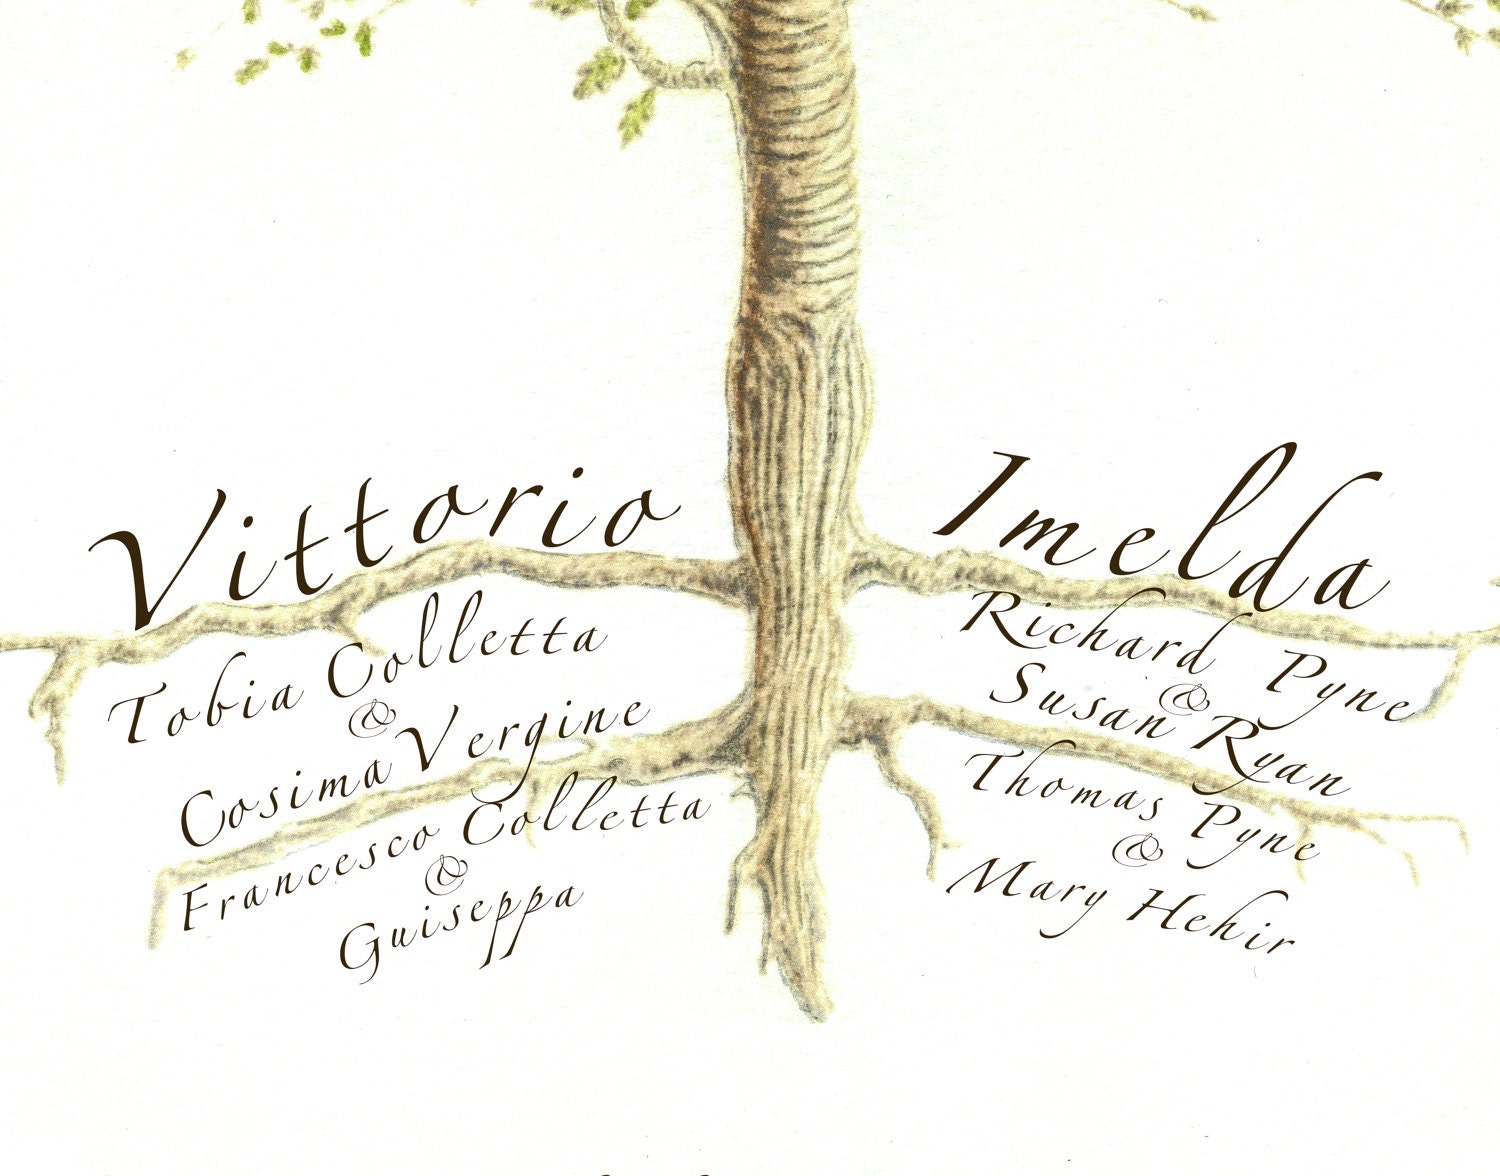 Vittorio
Tobia Colletta
&
Cosima Vergine
Francesco Colletta
&
Guiseppa
Imelda
Richard Pyne
&
Susan Ryan
Thomas Pyne
&
Mary Hehir